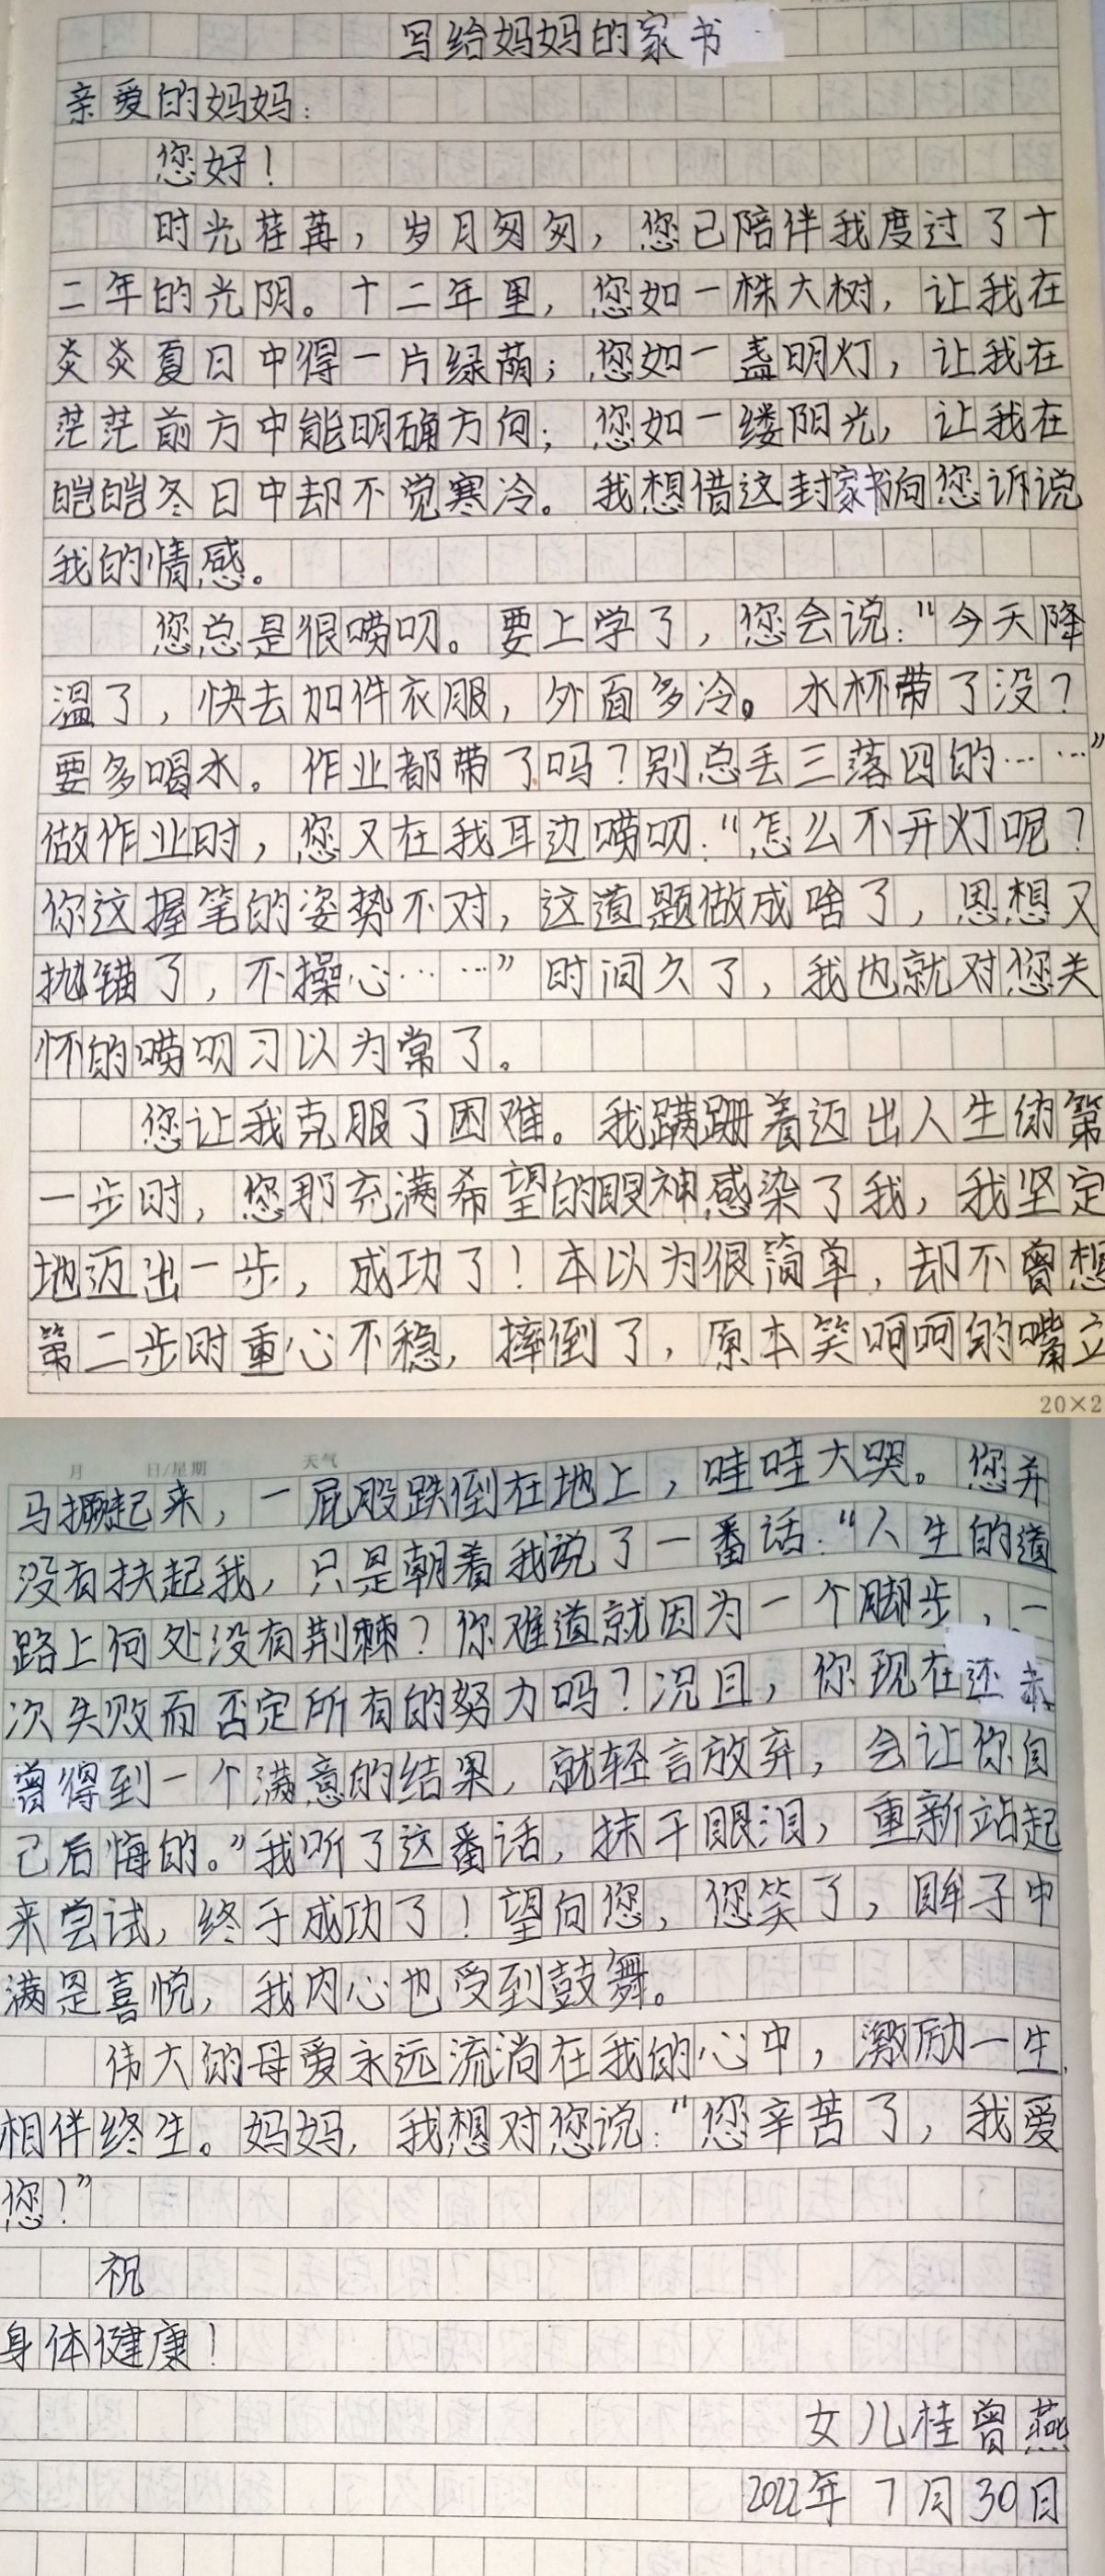 写给妈妈的家书
亲爱的妈妈:
您好!
时光荏苒,岁月匆匆,您已陪伴我度过了十
二年的光阴。十二年里,您如一株大树,让我在
炎炎夏日中得一片绿荫;您如一盏明灯,让我在
茫茫前方中能明确方向;您如一缕阳光,让我在
皑皑冬日中却不觉寒冷。我想借这封家书向您诉说
我的情感。
您总是很唠叨。要上学了,您会说:“今天降
温了,快去加件衣服,外面多冷。水杯带了没?
要多喝水。作业都带了吗?别总丢三落四的……”
做作业时,您又在我耳边唠叨:“怎么不开灯呢?
你这握笔的姿势不对,这道题做成啥了,思想又
抛锚了,不操心……”时间久了,我也就对您关
怀的唠叨习以为常了。
您让我克服了困难。我蹒跚着迈出人生的第
一步时,您那充满希望的眼神感染了我,我坚定
地迈出一步,成功了!本以为很简单,却不曾想
第二步时重心不稳,摔倒了,原本笑呵呵的嘴立
20×2
月 日/星期 天气
马撅起来,一屁股跌倒在地上,哇哇大哭。您并
没有扶起我,只是朝着我说了一番话:“人生的道
路上何处没有荆棘?你难道就因为一个脚步,一
次失败而否定所有的努力吗?况且,你现在还未
曾得到一个满意的结果,就轻言放弃,会让你自
己后悔的。”我听了这番话,抹干眼泪,重新站起
来尝试,终于成功了!望向您,您笑了,眸子中
满是喜悦,我内心也受到鼓舞。
伟大的母爱永远流淌在我的心中,激励一生,
相伴终生。妈妈,我想对您说:“您辛苦了,我爱
您!”
祝
身体健康!
女儿桂曾燕
2022年7月30日